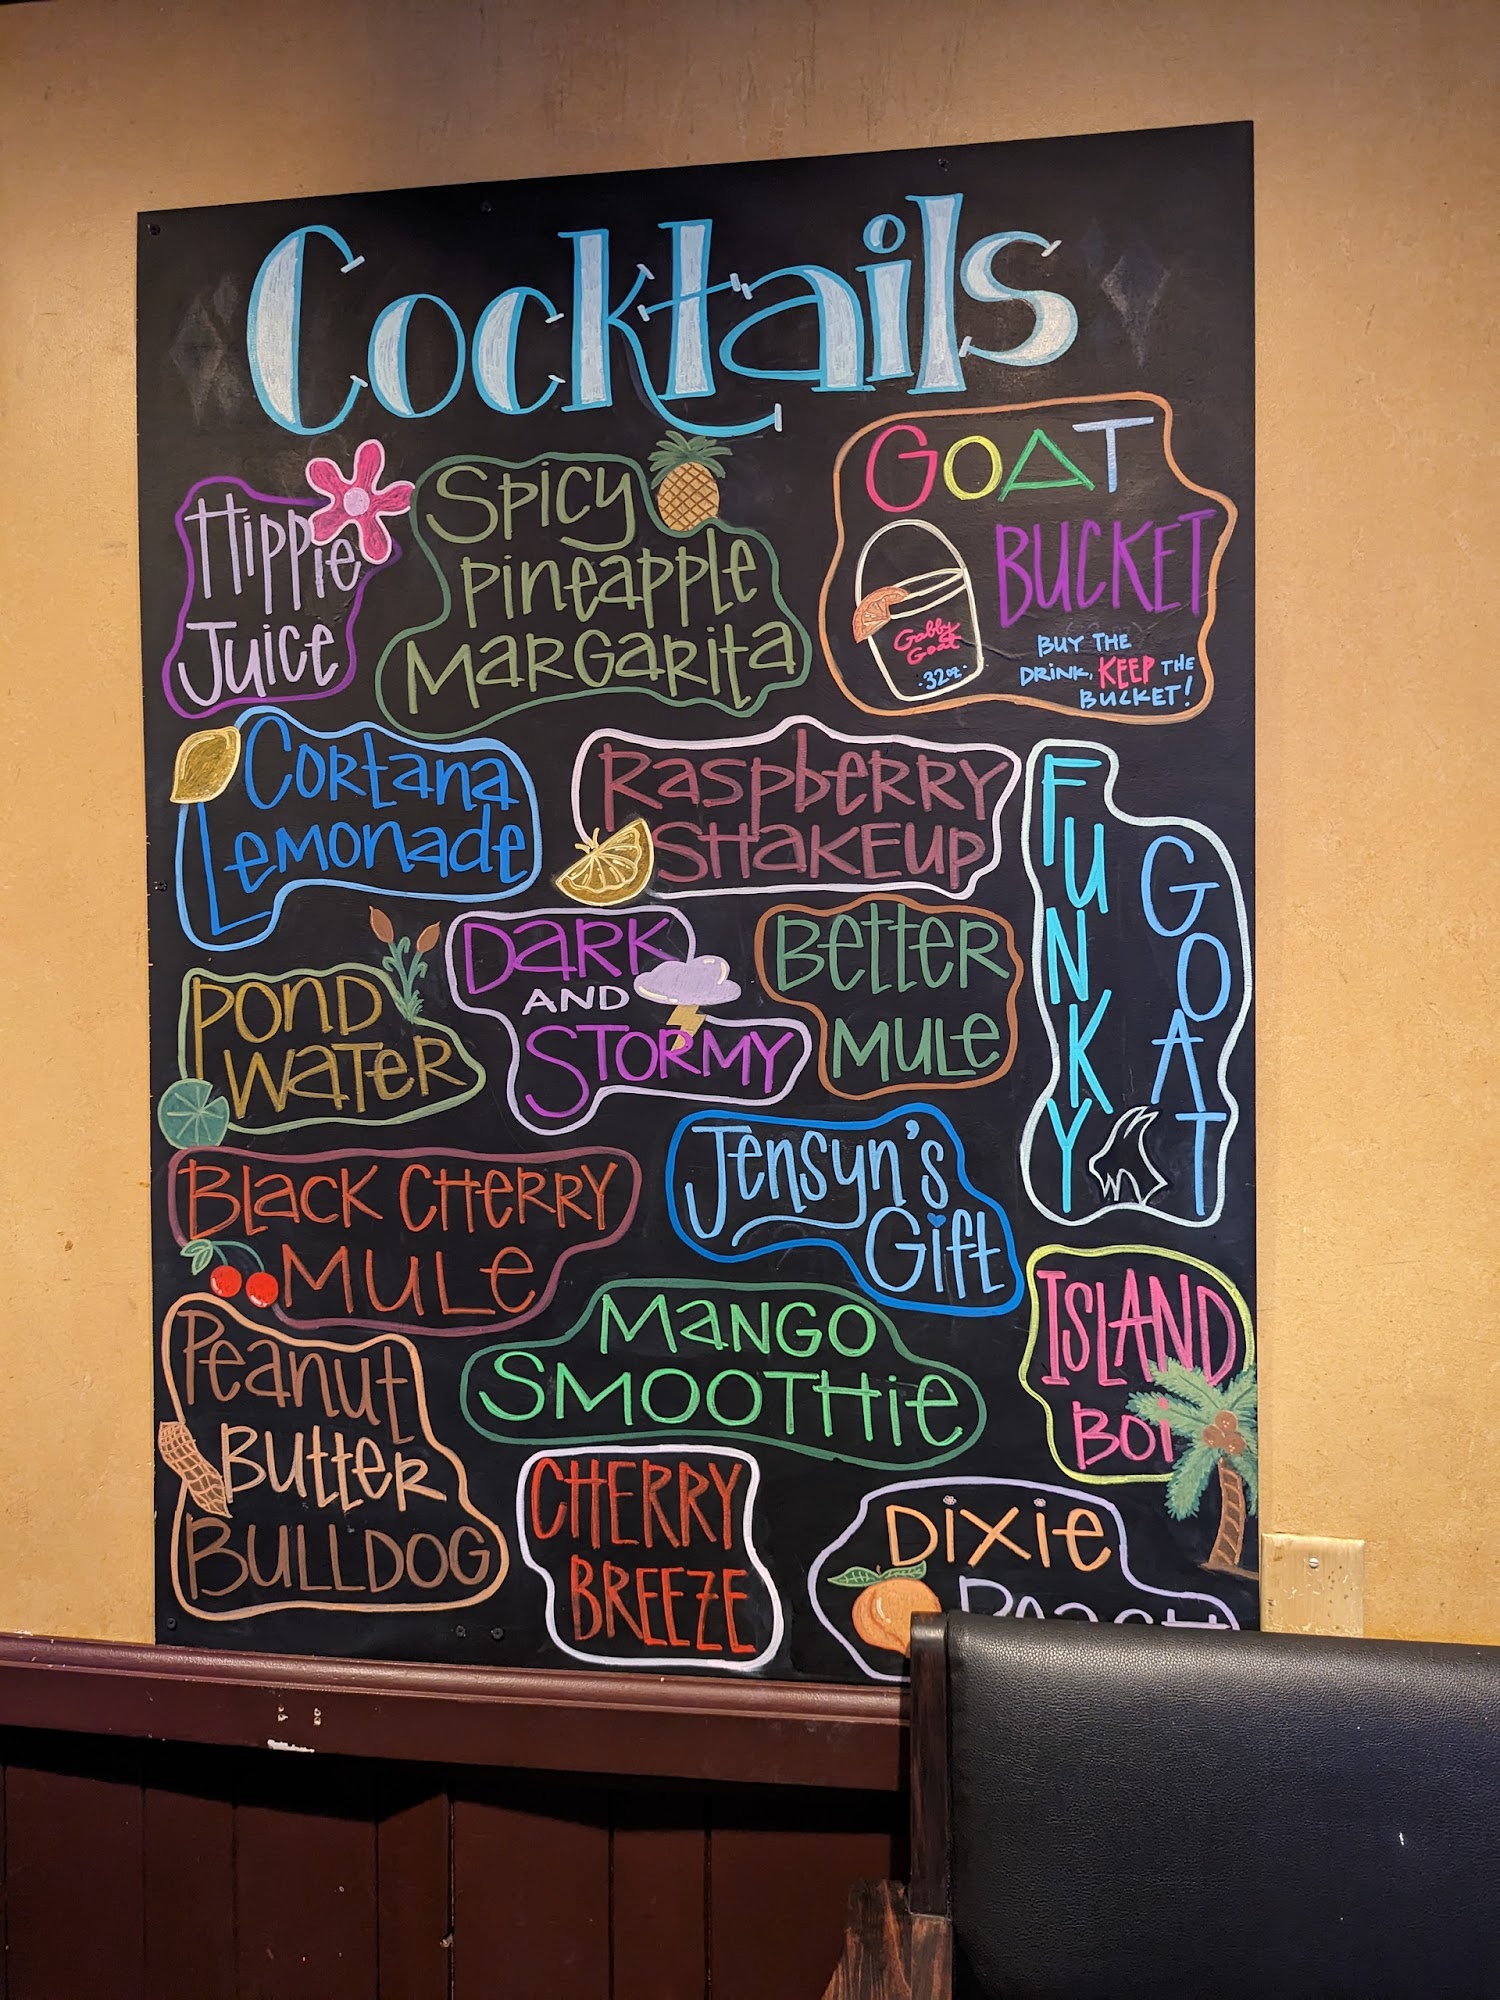 Cocktails
Hippie
Juice
Spicy
Pineapple
Margarita
GOAT
BUCKET
Gabby
Goat
·32oz·
BUY THE
DRINK, KEEP THE
BUCKET!
Cortana
Lemonade
Raspberry
Shakeup
FUNKY
GOAT
Pond
Water
Dark
AND
Stormy
Better
Mule
Black Cherry
Mule
Jensyn's
Gift
Island
Boi
Peanut
Butter
Bulldog
Mango
Smoothie
Cherry
Breeze
Dixie